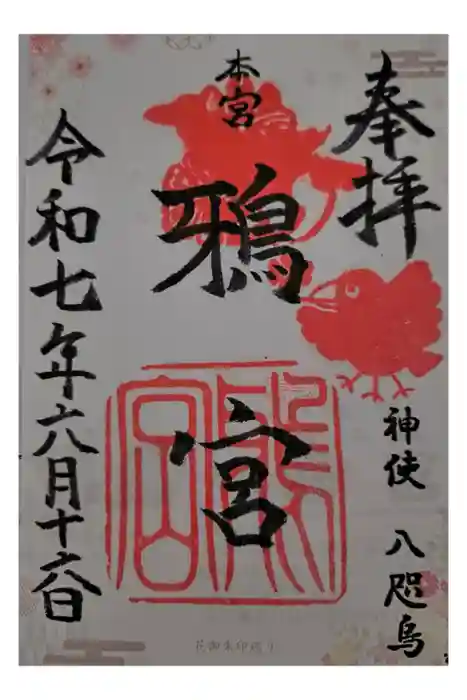 奉拝
神使 八咫烏
本宮
鴉宮
鴉宮
令和七年六月十六日